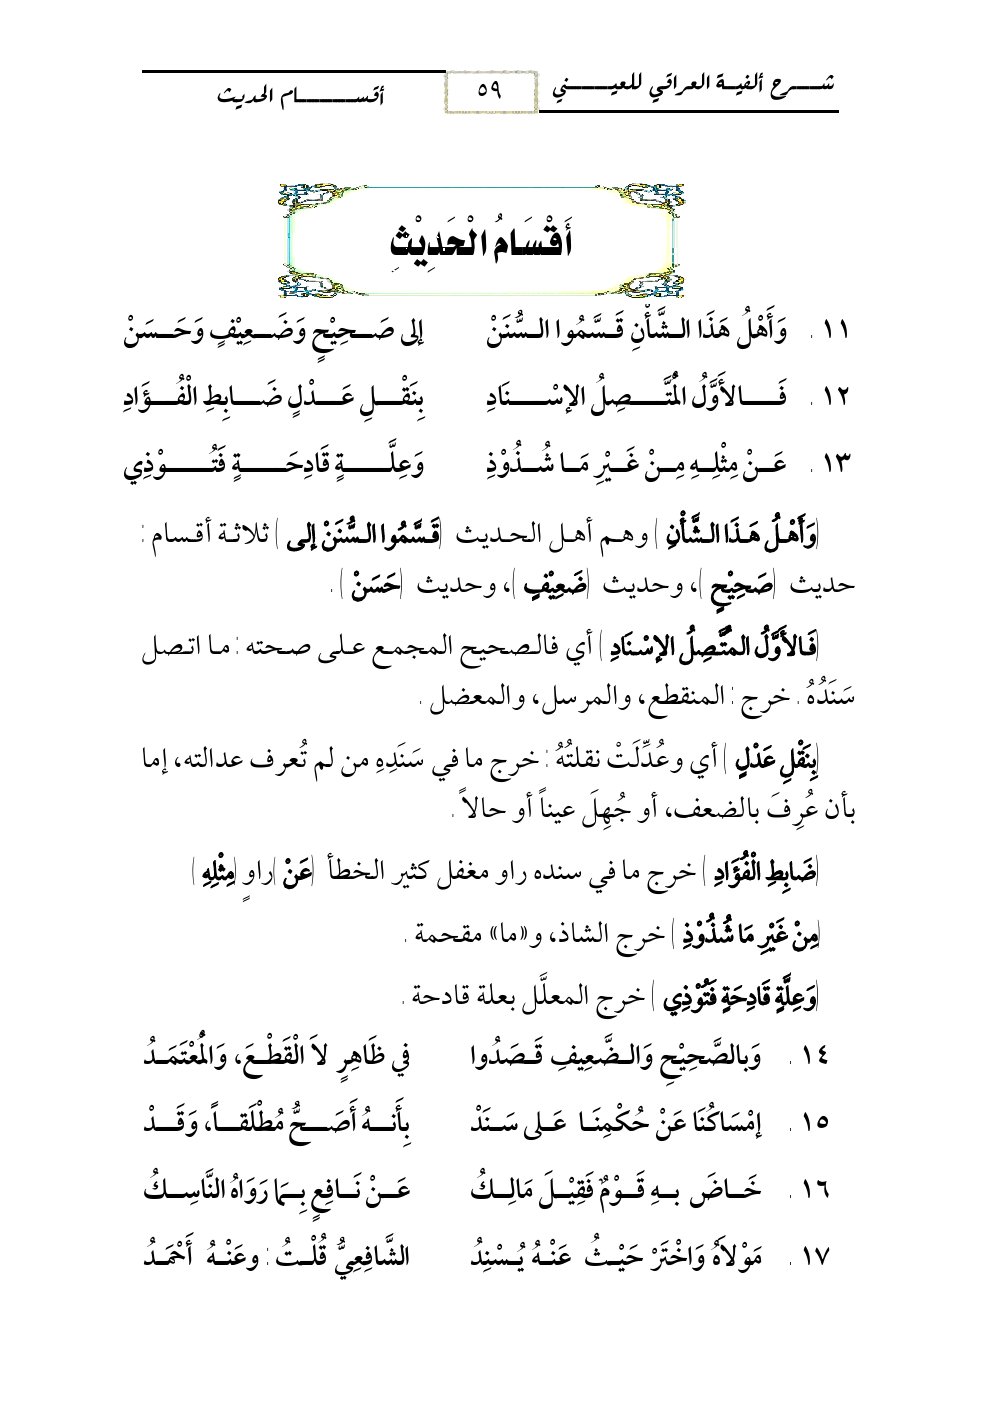 شـــرح ألفيـة العراقي للعيــــني
٥٩
أقســــــام الحديث
أَقْسَامُ الْحَدِيْثِ
١١ . وَأَهْلُ هَذَا الشَّأْنِ قَسَّمُوا السُّنَنْ إلى صَحِيْحٍ وَضَعِيْفٍ وَحَسَنْ
١٢ . فَالأَوَّلُ الْمُتَّصِلُ الإسْنَادِ بِنَقْلِ عَدْلٍ ضَابِطِ الْفُؤَادِ
١٣ . عَنْ مِثْلِهِ مِنْ غَيْرِ مَا شُذُوْذِ وَعِلَّةٍ قَادِحَةٍ فَتُوْذِي
(وَأَهْلُ هَذَا الشَّأْنِ) وهم أهل الحديث (قَسَّمُوا السُّنَنْ إلى) ثلاثة أقسام :
حديث (صَحِيْحٍ)، وحديث (ضَعِيْفٍ)، وحديث (حَسَنْ) .
(فَالأَوَّلُ المتَّصِلُ الإسْنَادِ) أي فالصحيح المجمع على صحته : ما اتصل
سَنَدُهُ . خرج : المنقطع، والمرسل، والمعضل .
(بِنَقْلِ عَدْلٍ) أي وعُدِّلَتْ نقلتُهُ : خرج ما في سَنَدِهِ من لم تُعرف عدالته، إما
بأن عُرِفَ بالضعف، أو جُهِلَ عيناً أو حالاً .
(ضَابِطِ الْفُؤَادِ) خرج ما في سنده راو مغفل كثير الخطأ (عَنْ) راوٍ (مِثْلِهِ)
(مِنْ غَيْرِ مَا شُذُوْذِ) خرج الشاذ، و«ما» مقحمة .
(وَعِلَّةٍ قَادِحَةٍ فَتُوْذِي) خرج المعلَّل بعلة قادحة .
١٤ . وَبالصَّحِيْحِ وَالضَّعِيفِ قَصَدُوا في ظَاهِرٍ لاَ الْقَطْعَ، وَالْمُعْتَمَدُ
١٥ . إمْسَاكُنَا عَنْ حُكْمِنَا عَلى سَنَدْ بِأَنهُ أَصَحُّ مُطْلَقاً، وَقَدْ
١٦ . خَاضَ بهِ قَوْمٌ فَقِيْلَ مَالِكُ عَنْ نَافِعٍ بِمَا رَوَاهُ النَّاسِكُ
١٧ . مَوْلاَهُ وَاخْتَرْ حَيْثُ عَنْهُ يُسْنِدُ الشَّافِعِيُّ قُلْتُ : وعَنْهُ أَحْمَدُ